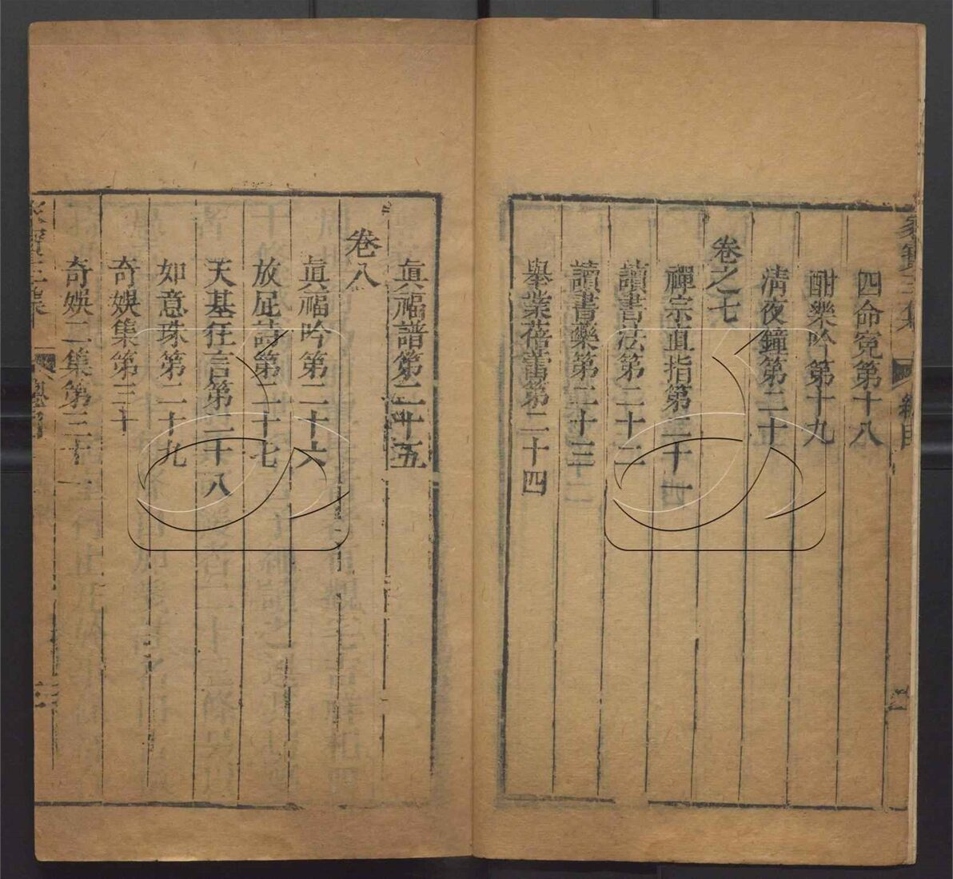 四命寃第十八
酣樂吟第十九
清夜鐘第二十
卷之七
禪宗直指第二十一
讀書法第二十二
讀書樂第二十三
舉業蓓蕾第二十四
眞福譜第二十五
卷八
眞福吟第二十六
放屁詩第二十七
天基狂言第二十八
如意珠第二十九
奇娛集第三十
奇娛二集第三十一